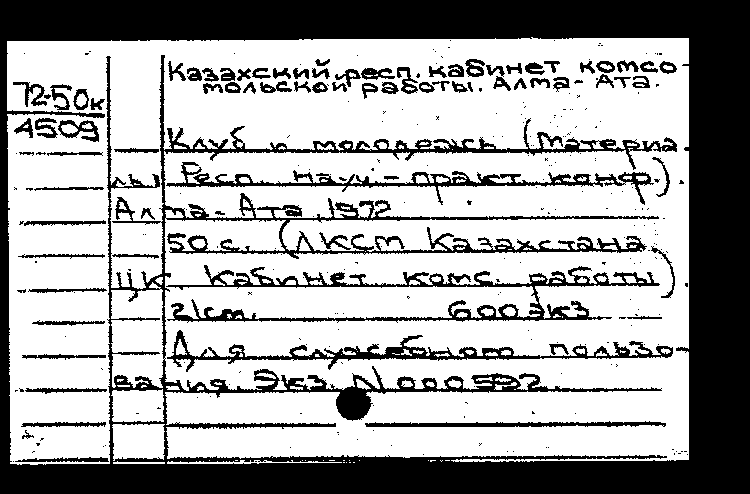 Казахский респ. кабинет комсо-
мольской работы. Алма-Ата.
72-50к
4509
Клуб и молодежь (Материа
лы Респ. науч-практ. конф.).
Алма-Ата, 1972
50 с. (ЛКСМ Казахстана
ЦК. Кабинет комс. работы).
21см. 600 экз
Для служебного пользо-
вания. Экз. N 000592.